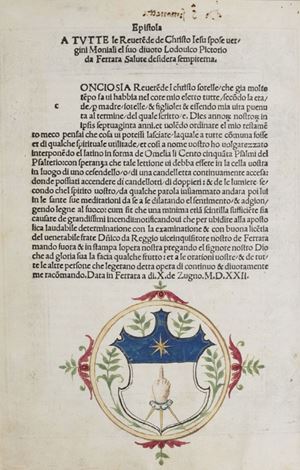 Epistola
A TVTTE le Reuerēde de Christo Iesu spose uer/
gini Moniali el suo diuoto Lodouico Pictorio
da Ferrara Salute desidera sempiterna.
ONCIOSIA Reuerēde ī christo sorelle/che gia molto
c
tēpo sa ui habbia nel core mio elerto tutte/secōdo la eta/
de/p madre/sorelle/& figliole: & essendo mia uita puenu
ta al termine/del quale scritto e. Dies annoꝝ nostroꝝ in
ipsis septuaginta anni,et uolēdo ordinare el mio testamē
to meco pensai che cosa ui potessi lassare/laquale a tutte cōmuna fosse
et di qualche spirituale utilitade,et cosi a nome uostro ho uolgarezzato
interponēdo el latino in forma de Omelia li Cento cinquāta Psalmi del
Psalterio:con speranza che tale lettione ui debba essere in la cella uostra
in luogo di uno cesendelo/o/di una candeletta continuamente accesa:
donde possiati accendere di candellotti/di doppieri/& de le lumiere se/
condo che'l spirito uostro/da qualche parola insiammato andara poi lui
in le sante sue meditationi da se a se dilatando el sentimento/& adgion/
gendo legne al fuoco: cum sit che una minima etiā scintilla sufficiēte sia
causare de grandissimi incendii:notificandoui che per ubidire alla aposto
lica laudabile determinatione con la examinatione & con buona licētia
del uenerabile frate Dñico da Reggio uiceinquisitore nostro de Ferrara
mando fuora & in stampa lopera nostra pregando el signore nostro Dio
che ad gloria sua la facia qualche frutto: et a le orationi uostre/& de tut/
te le altre persone che legerano detta opera di continuo & diuotamente
me racōmando. Data in Ferrara a di.X.de Zugno. M.D.XXII.